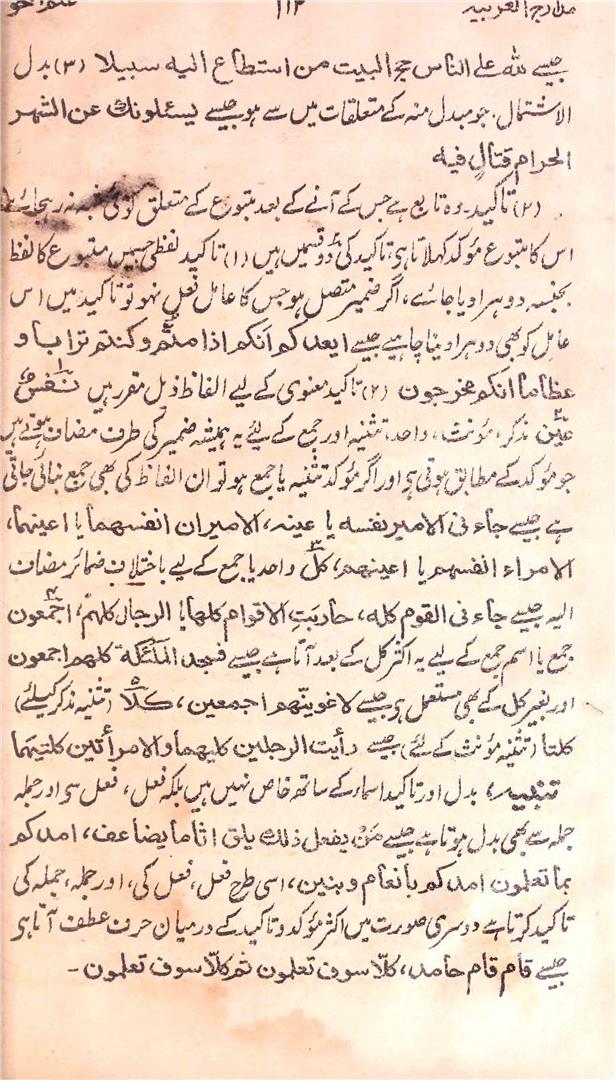 مدارج العربیہ ۱۱۳ علم نحو
جیسے للہ علی الناس حج البیت من استطاع الیہ سبیلا (۳) بدل
الاشتمال، جو مبدل منہ کے متعلقات میں سے ہو جیسے یسئلونک عن الشہر
الحرام قتالٍ فیہ
(۲) تاکید۔ وہ تابع ہے جس کے آنے کے بعد متبوع کے متعلق کوئی شبہ نہ رہجائے
اس کا متبوع مؤکد کہلاتا ہی، تاکید کی دو قسمیں ہیں (۱) تاکید لفظی جسمیں متبوع کا لفظ
بجنسہ دوہرا دیا جائے، اگر ضمیر متصل ہو جس کا عامل فعل نہو تو تاکید میں اس
عامل کو بھی دوہرا دینا چاہیے جیسے ایعدکم انکم اذا متم وکنتم ترابا و
عظاما انکم مخرجون (۲) تاکید معنوی کے لیے الفاظ ذیل مقرر ہیں ۱ نفسٌ
۲ عین مذکر، مؤنث، واحد، تثنیہ اور جمع کے لیئے یہ ہمیشہ ضمیر کی طرف مضاف ہوتے ہیں
جو مؤکد کے مطابق ہوتی ہی اور اگر مؤکد تثنیہ یا جمع ہو تو ان الفاظ کی بھی جمع بنائی جاتی
ہے جیسے جاءنی الامیر نفسہ یا عینہ، الامیران انفسہما یا اعینہما،
الامراء انفسہم یا اعینہم، ۳ کلّ واحد یا جمع کے لیے باختلاف ضمائر مضاف
الیہ جیسے جاءنی القوم کلہ، حاربتِ الاقوام کلھا یا الرجال کلہم، ۴ اجمعون
جمع یا اسم جمع کے لیے یہ اکثر کل کے بعد آتا ہے جیسے فسجد الملٰئکۃ کلہم اجمعون
اور بغیر کل کے بھی مستعمل ہی جیسے لاغوینھم اجمعین، ۵ کلا (تثنیہ مذکر کیلئے)
کلتا (تثنیہ مؤنث کے لئے) جیسے رأیت الرجلین کلیہما والامرأتین کلتیہما
تنبیہ، بدل اور تاکید اسماء کے ساتھ خاص نہیں ہیں بلکہ فعل، فعل سی اور جملہ
جملہ سے بھی بدل ہوتا ہے جیسے مَنْ یفعل ذلک یلق اثاما یضاعف، امدکم
بما تعلمون امدکم بانعام وبنین، اسی طرح فعل، فعل کی، اور جملہ، جملہ کی
تاکید کرتا ہے دوسری صورت میں اکثر مؤکد و تاکید کے درمیان حرف عطف آتا ہی
جیسے قام قام حامد، کلّا سوف تعلمون ثم کلّا سوف تعلمون۔